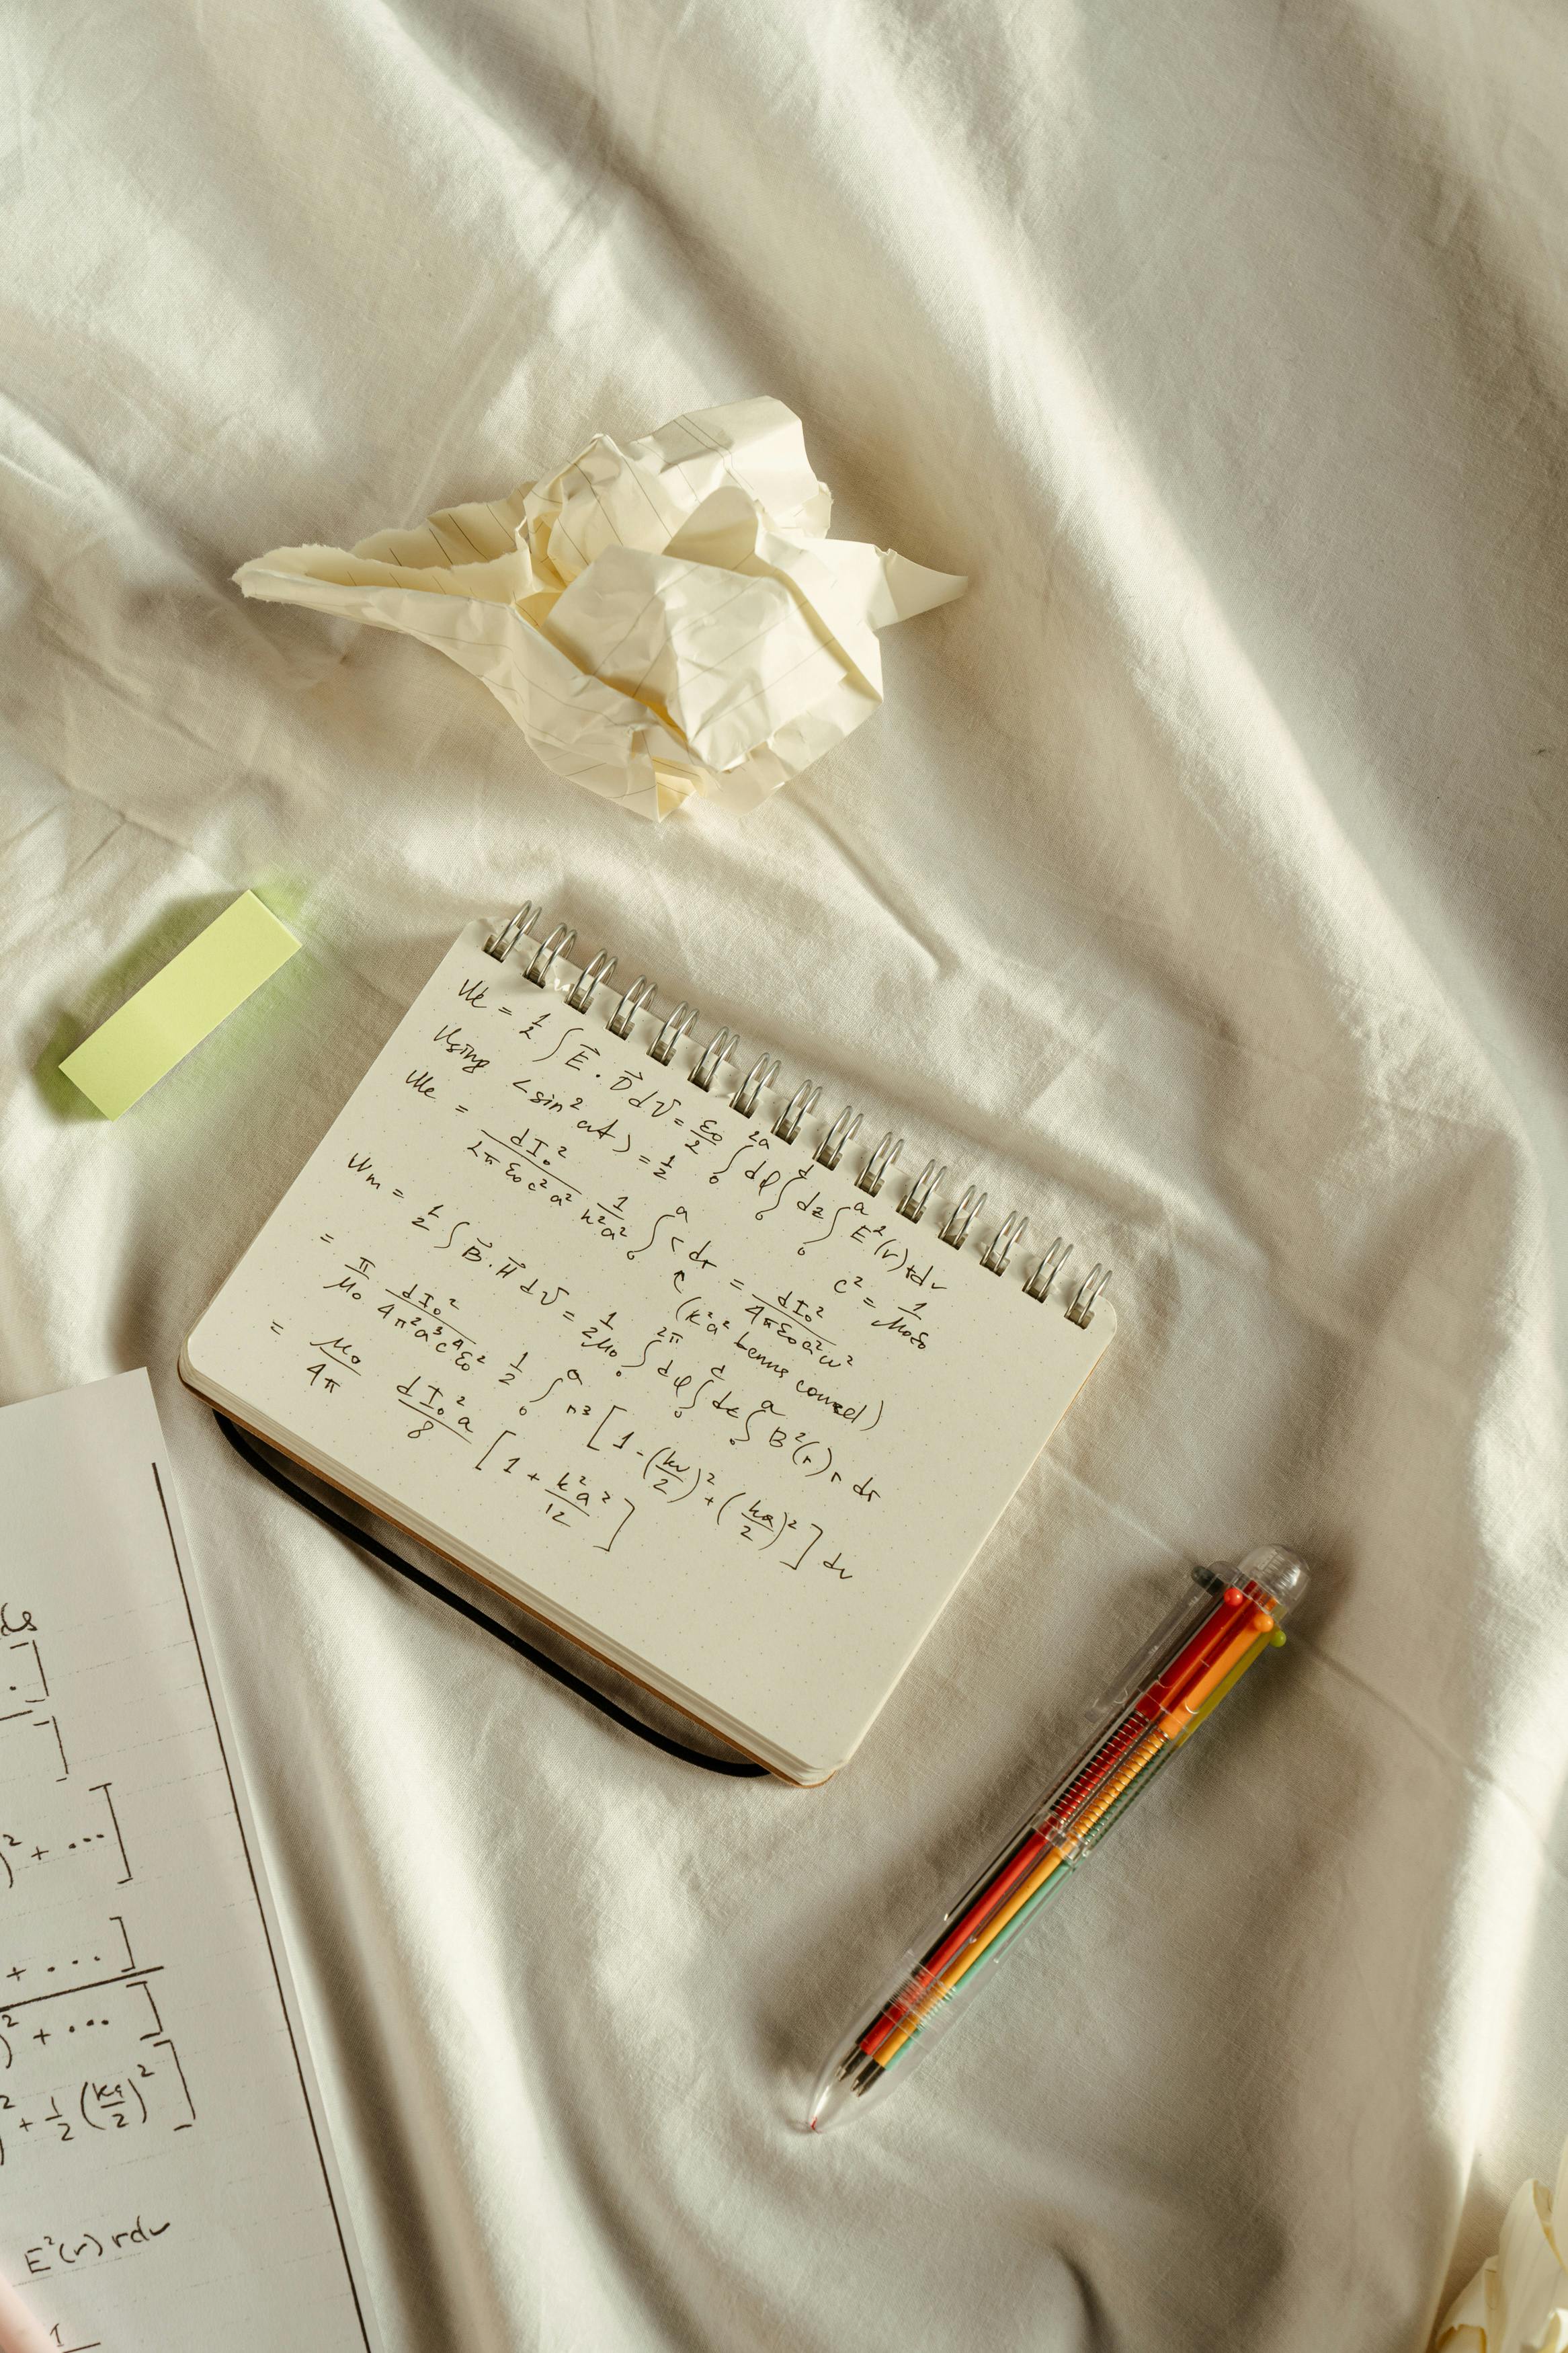 We = 1/2 ∫ E⃗ · D⃗ dV = ε₀/2 ∫₀^2a dφ ∫₀^d dz ∫₀^a E²(r) r dr
Using <sin² ωt> = 1/2 c² = 1/μ₀ε₀
We = dI₀²/2πε₀c²a² 1/k²a² ∫₀^a r dr = dI₀²/4πε₀a²ω²
(k²a² terms
Wm = 1/2 ∫ B⃗ · H⃗ dV = 1/2μ₀ ∫₀^2π dφ ∫₀^d dz ∫₀^a B²(r) r dr
= π/μ₀ 1/2 ∫₀^a r³ [1 - (kr/2)² + (ka/2)²] dr
= μ₀/4π dI₀²a/8 [1 + k²a²/12]
]
]
)² + ...]
+ ...]
)² + ...]
² + 1/2 (ka/2)²]
E²(r) r dr
1